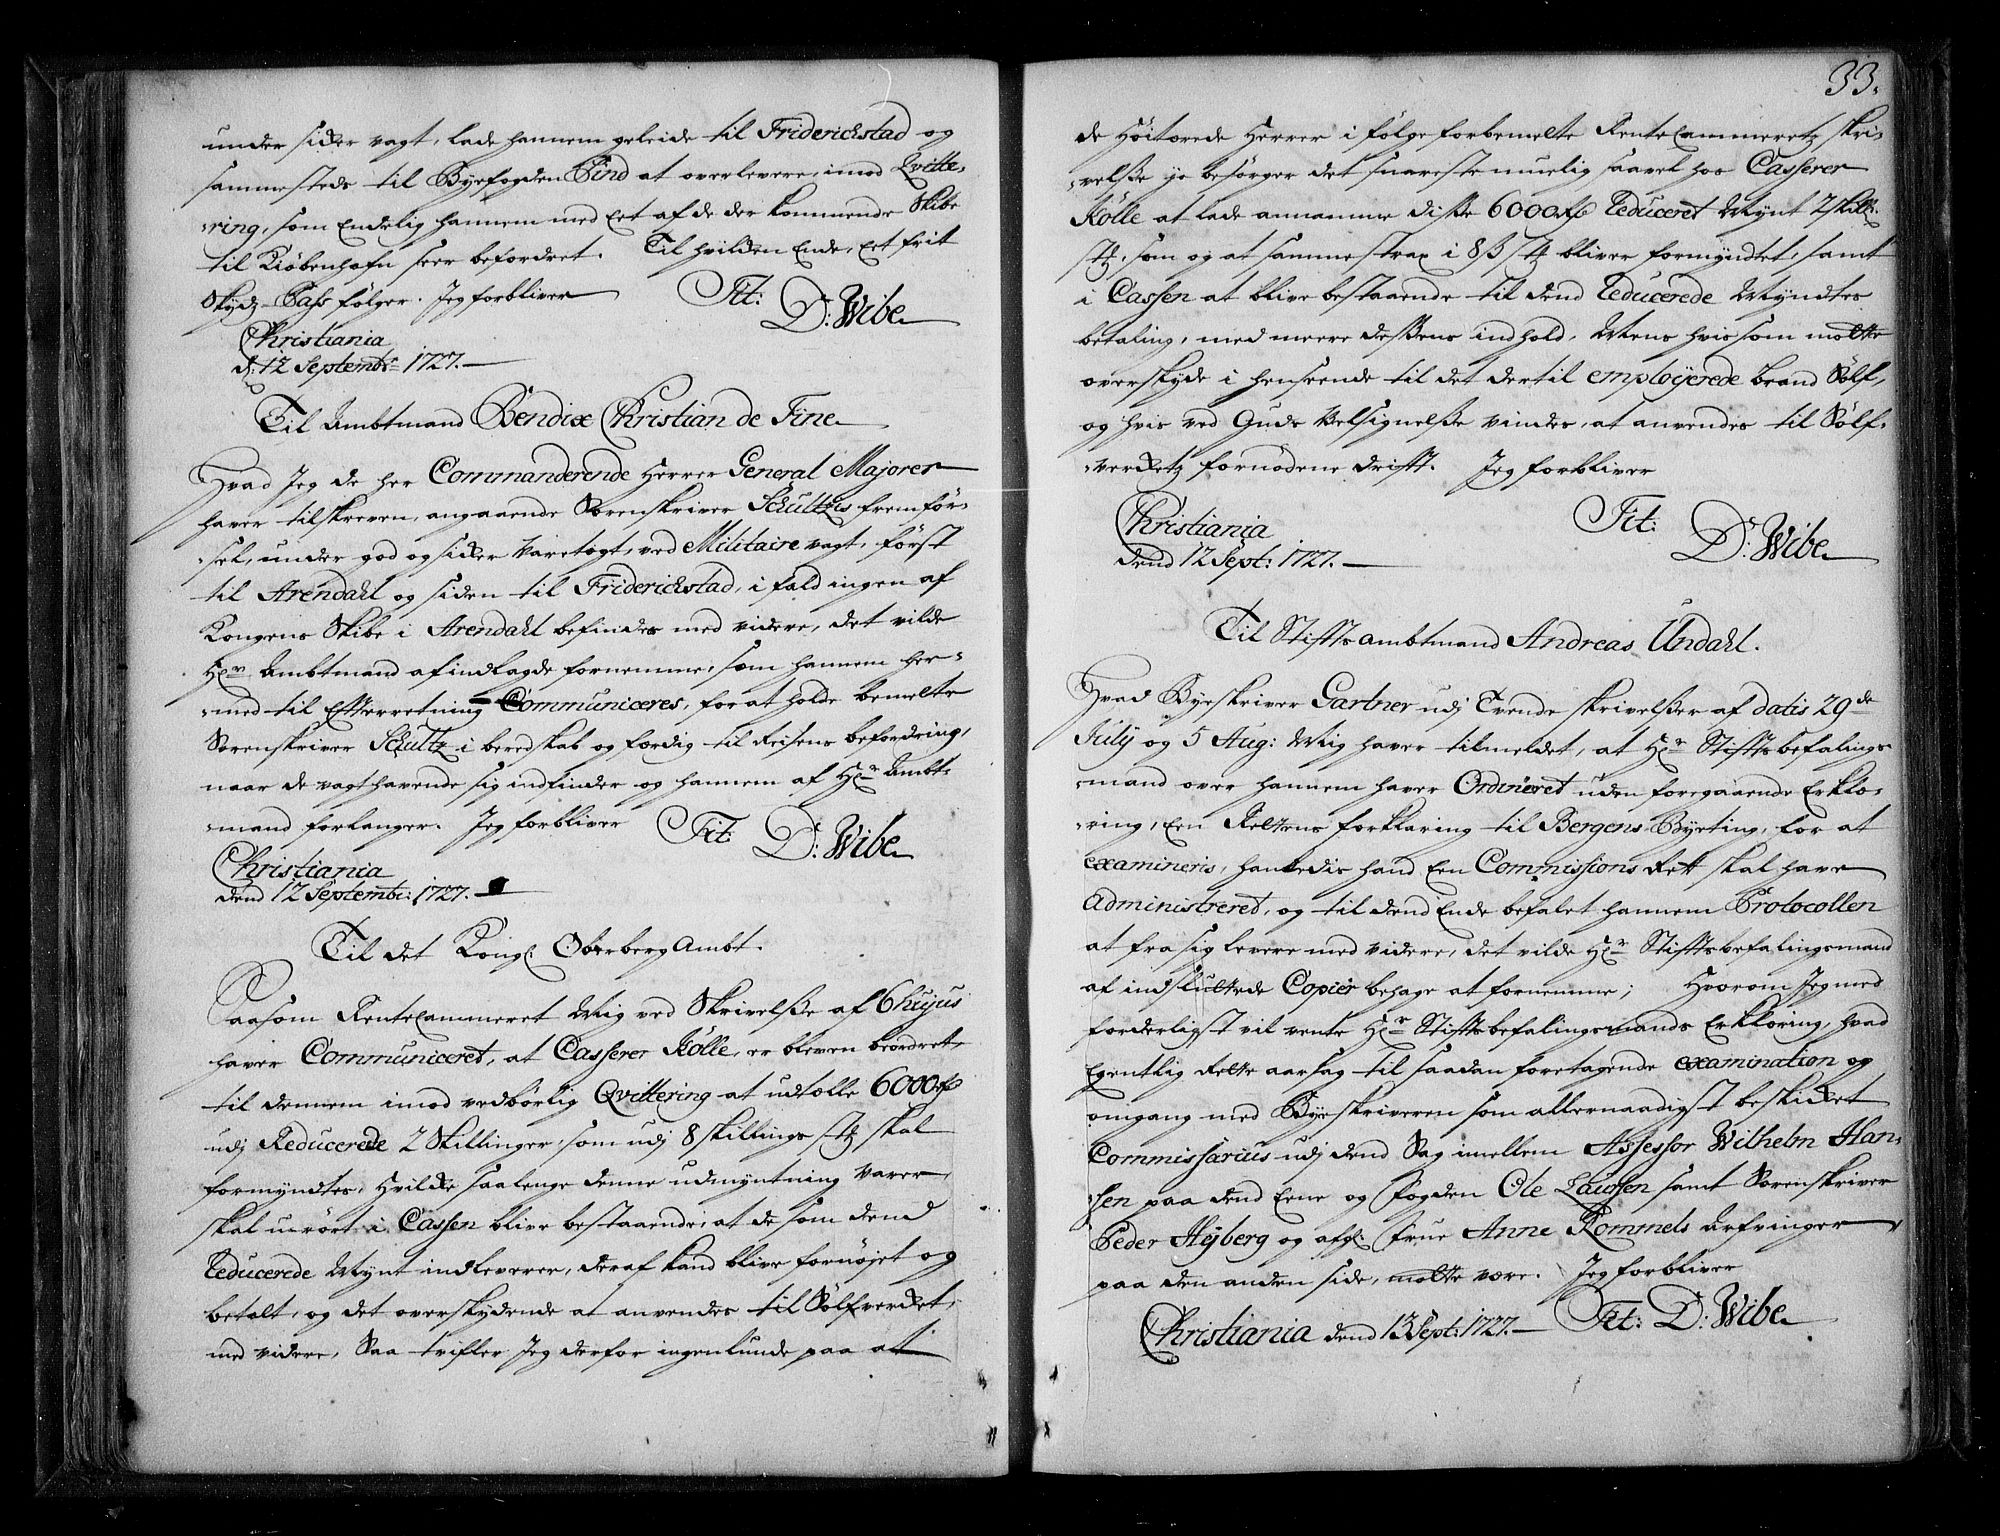 under sicker vagt, lade hannem geleide til Friderichstad og
sammesteds til Byefogden Bind at overlevere, imod Qvitte-
-ring, som Endelig hannem med Eet af de der kommende Skibe
til Kiøbenhafn seer befordret. Til hvilcken Ende, Eet frit
Skyds-Pass følger. Jeg forbliver
Tit: D: Wibe
Christiania
d: 12 Septembr 1727.
Til Ambtmand Bendix Christian de Fine
Hvad Jeg de her Commanderende Herrer General Majorer
haver tilskreven, angaaende Sorenskriver Schultzis fremfør-
-sel, under god og sicker Varetægt, ved Militaire vagt, først
til Arendahl og siden til Friderichstad, i fald ingen af
Kongens Skibe i Arendahl befindes med videre, det vilde
Hr Ambtmand af indlagde fornemme, som hannem her-
-med til Efterretning Communiceres, for at holde bemelte
Sorenskriver Schultz i beredskab og færdig til Reisens befordring,
naar de vagthavende sig indfinder og hannem af Hr Ambt-
-mand forlanger. Jeg forbliver
Tit: D: Wibe
Christiania
dend 12 Septembr: 1727.
Til det Kongl: Oberberg Ambt.
Saasom RenteCammeret Mig ved Skrivelße af 6 hujus
haver Communiceret, at Casserer Kølle, er bleven beordret,
til dennem imod vedbørlig Qvittering at udtælle 6000 rd
udj Reducerede 2 Skillinger, som udj 8 skillings stk skal
formyndtes, Hvilcke saalenge denne udmyntning varer,
skal urørt i Cassen blive bestaaende, at de som dend
Reducerede Mynt indleverer, deraf kand blive fornøjet og
betalt, og det overskydende at anvendes til Sølfvercket,
med videre, Saa tvifler Jeg derfor ingenlunde paa at
33.
de Høitærede Herrer i følge forbemelte RenteCammeretz skri-
-velße jo besørger det snareste muelig saavel hos Casserer
Kølle at lade annamme diße 6000 rd Reduceret Mynt 2 skill:
stk, som og at samme strax i 8 ß stk bliver formyndtet, samt
i Cassen at blive bestaaende til dend Reducerede Myndtes
betaling, med meere deßens indhold, Mens hvis som motte
overskyde i henseende til det dertil employerede brand Sølf,
og hvis ved Guds Velsignelße vindes, at anvendes til Sølf-
-verketz fornødene drift. Jeg forbliver
Tit: D: Wibe
Christiania
dend 12 Sept: 1727.
Til Stiftsambtmand Andreas Undahl.
Hvad Byeskriver Gartner udj Tvende skrivelßer af datis 29de
July og 5 Aug: Mig haver tilmeldet, at Hr Stiftsbefalings-
-mand over hannem haver Ordineret uden foregaaende Erklæ-
-ring, Een Rettens forklaring til Bergens Byeting, for at
examineris, hvorledis hand Een Commissions Rett skal have
administreret, og til dend Ende befalet hannem Protocollen
at fra sig levere med videre, det vilde Hr Stiftsbefalingsmand
af indsluttede Copier behage at fornemme; Hvorom Jeg med
forderligst vil vente Hr Stiftsbefalingsmands Erklæring, hvad
Egentlig Rette aarsag til saadan foretagende examination og
omgang med Byeskriveren som allernaadigst beskicket
Commissarius udj dend Sag imellem Assessor Wilhelm Han-
-sen paa dend Eene og Fogden Ole Larssen samt Sorenskriver
Peder Heyberg og afg: Frue Anne Rommels Arfvinger
paa den anden side, motte være. Jeg forbliver
Tit: D: Wibe
Christiania dend 13 Sept: 1727.